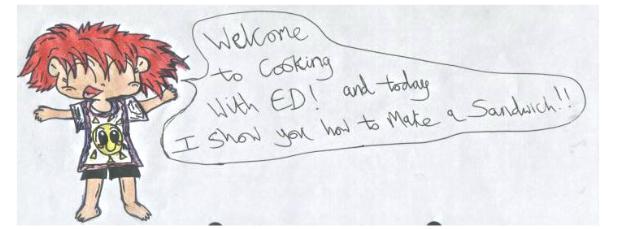 Welcome
to Cooking
With ED! and today
I show you how to Make a Sandwich!!